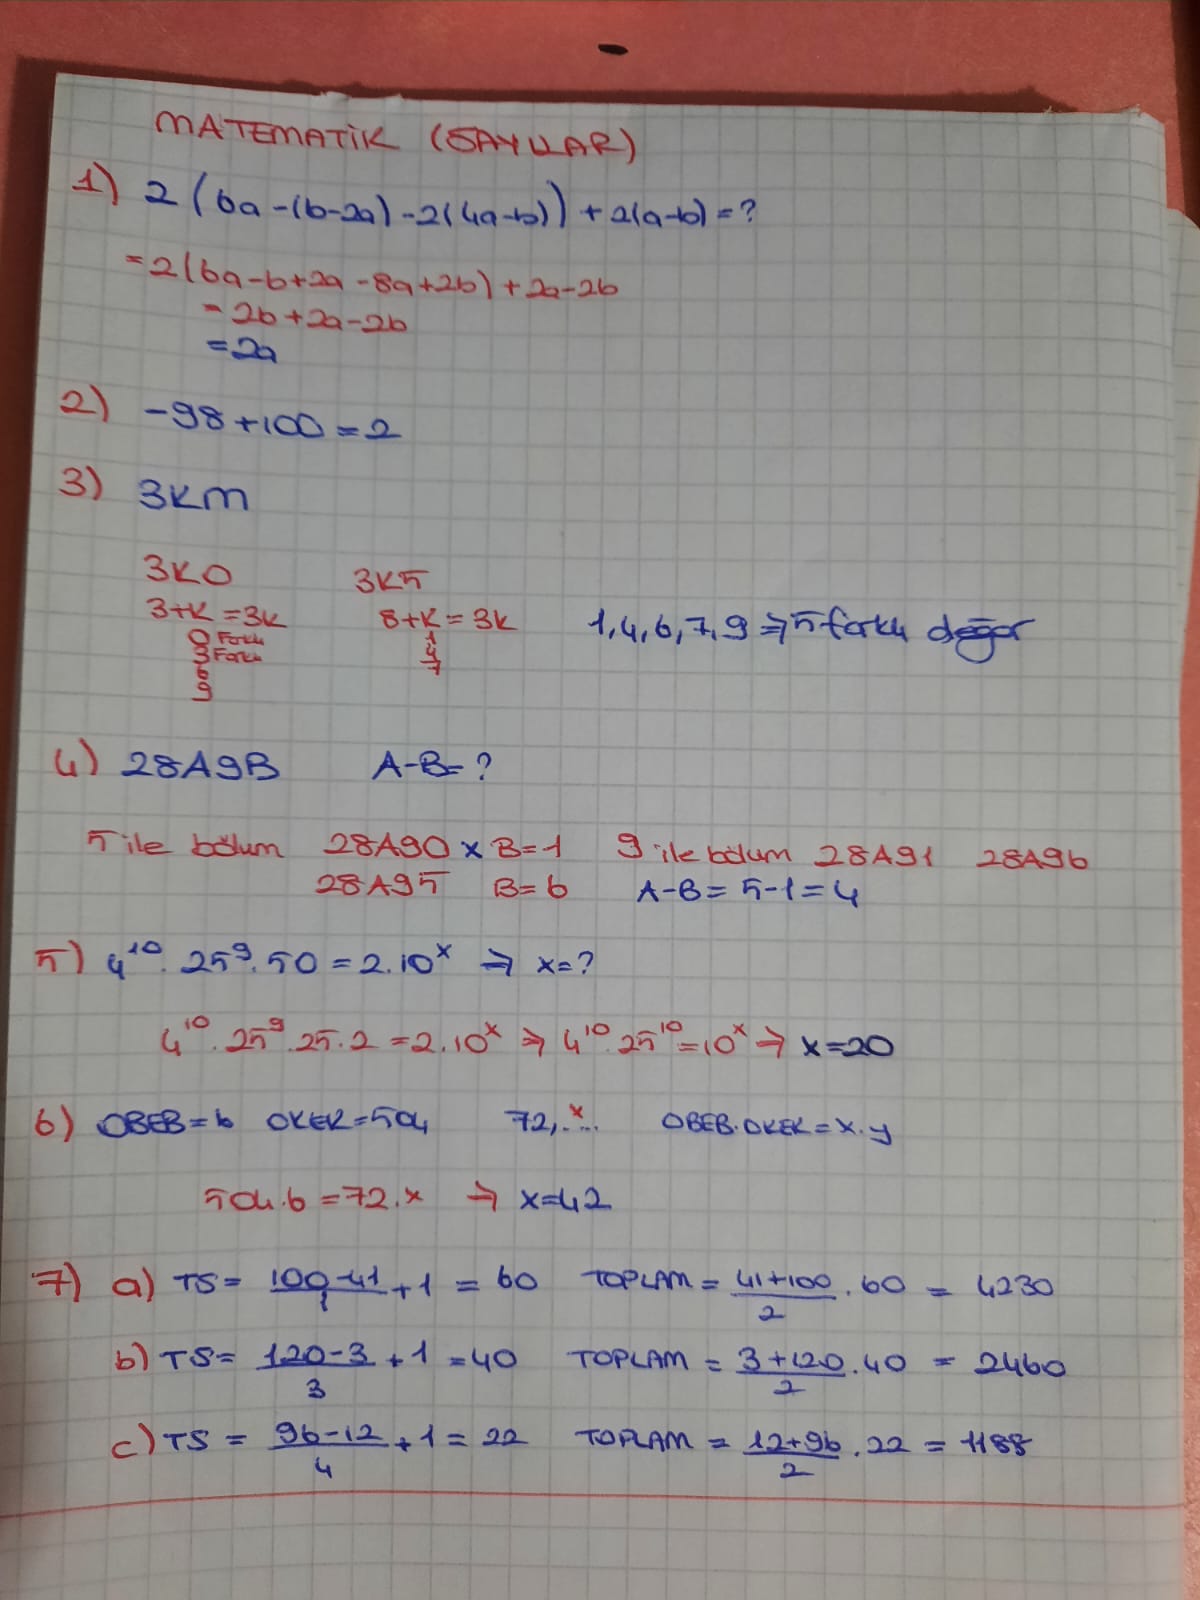 MATEMATİK (SAYILAR)
1) 2(6a-(b-2a)-2(4a-b))+2(a-b)=?
=2(6a-b+2a-8a+2b)+2a-2b
=2b+2a-2b
=2a
2) -98+100=2
3) 3KM
3K0 3K5
3+K=3k 8+K=3k 1,4,6,7,9 => 5 farklı değer
0 Farklı 1
3 Farklı 4
6 7
9
4) 28A9B A-B=?
5 ile bölüm 28A90 x B=1 9 ile bölüm 28A91 28A96
28A95 B=6 A-B=5-1=4
5) 4¹⁰.25⁹.50=2.10ˣ => x=?
4¹⁰.25⁹.25.2=2.10ˣ => 4¹⁰.25¹⁰=10ˣ => x=20
6) OBEB=6 OKEK=504 72,.x.. OBEB.OKEK=x.y
504.6=72.x => x=42
7) a) TS= (100-41)/1 +1 = 60 TOPLAM = (41+100)/2 .60 = 4230
b) TS= (120-3)/3 +1 =40 TOPLAM = (3+120)/2 .40 = 2460
c) TS = (96-12)/4 +1 = 22 TOPLAM = (12+96)/2 .22 = 1188